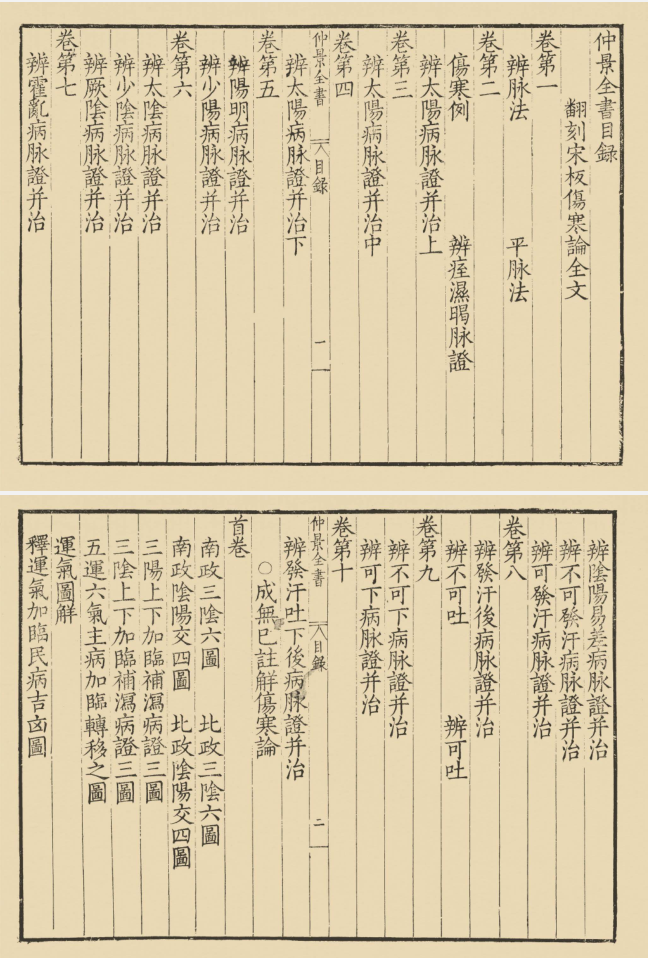 仲景全書目録
翻刻宋板傷寒論全文
卷第一
辨脉法 平脉法
卷第二
傷寒例 辨痓濕暍脉證
辨太陽病脉證并治上
卷第三
辨太陽病脉證并治中
卷第四
仲景全書 目録 一
辨太陽病脉證并治下
卷第五
辨陽明病脉證并治
辨少陽病脉證并治
卷第六
辨太陰病脉證并治
辨少陰病脉證并治
辨厥陰病脉證并治
卷第七
辨霍亂病脉證并治
辨陰陽易差病脉證并治
辨不可發汗病脉證并治
辨可發汗病脉證并治
卷第八
辨發汗後病脉證并治
辨不可吐 辨可吐
卷第九
辨不可下病脉證并治
辨可下病脉證并治
卷第十
仲景全書 目録 二
辨發汗吐下後病脉證并治
○成無巳註解傷寒論
首卷
南政三陰六圖 北政三陰六圖
南政陰陽交四圖 北政陰陽交四圖
三陽上下加臨補瀉病證三圖
三陰上下加臨補瀉病證三圖
五運六氣主病加臨轉移之圖
運氣圖解
釋運氣加臨民病吉凶圖